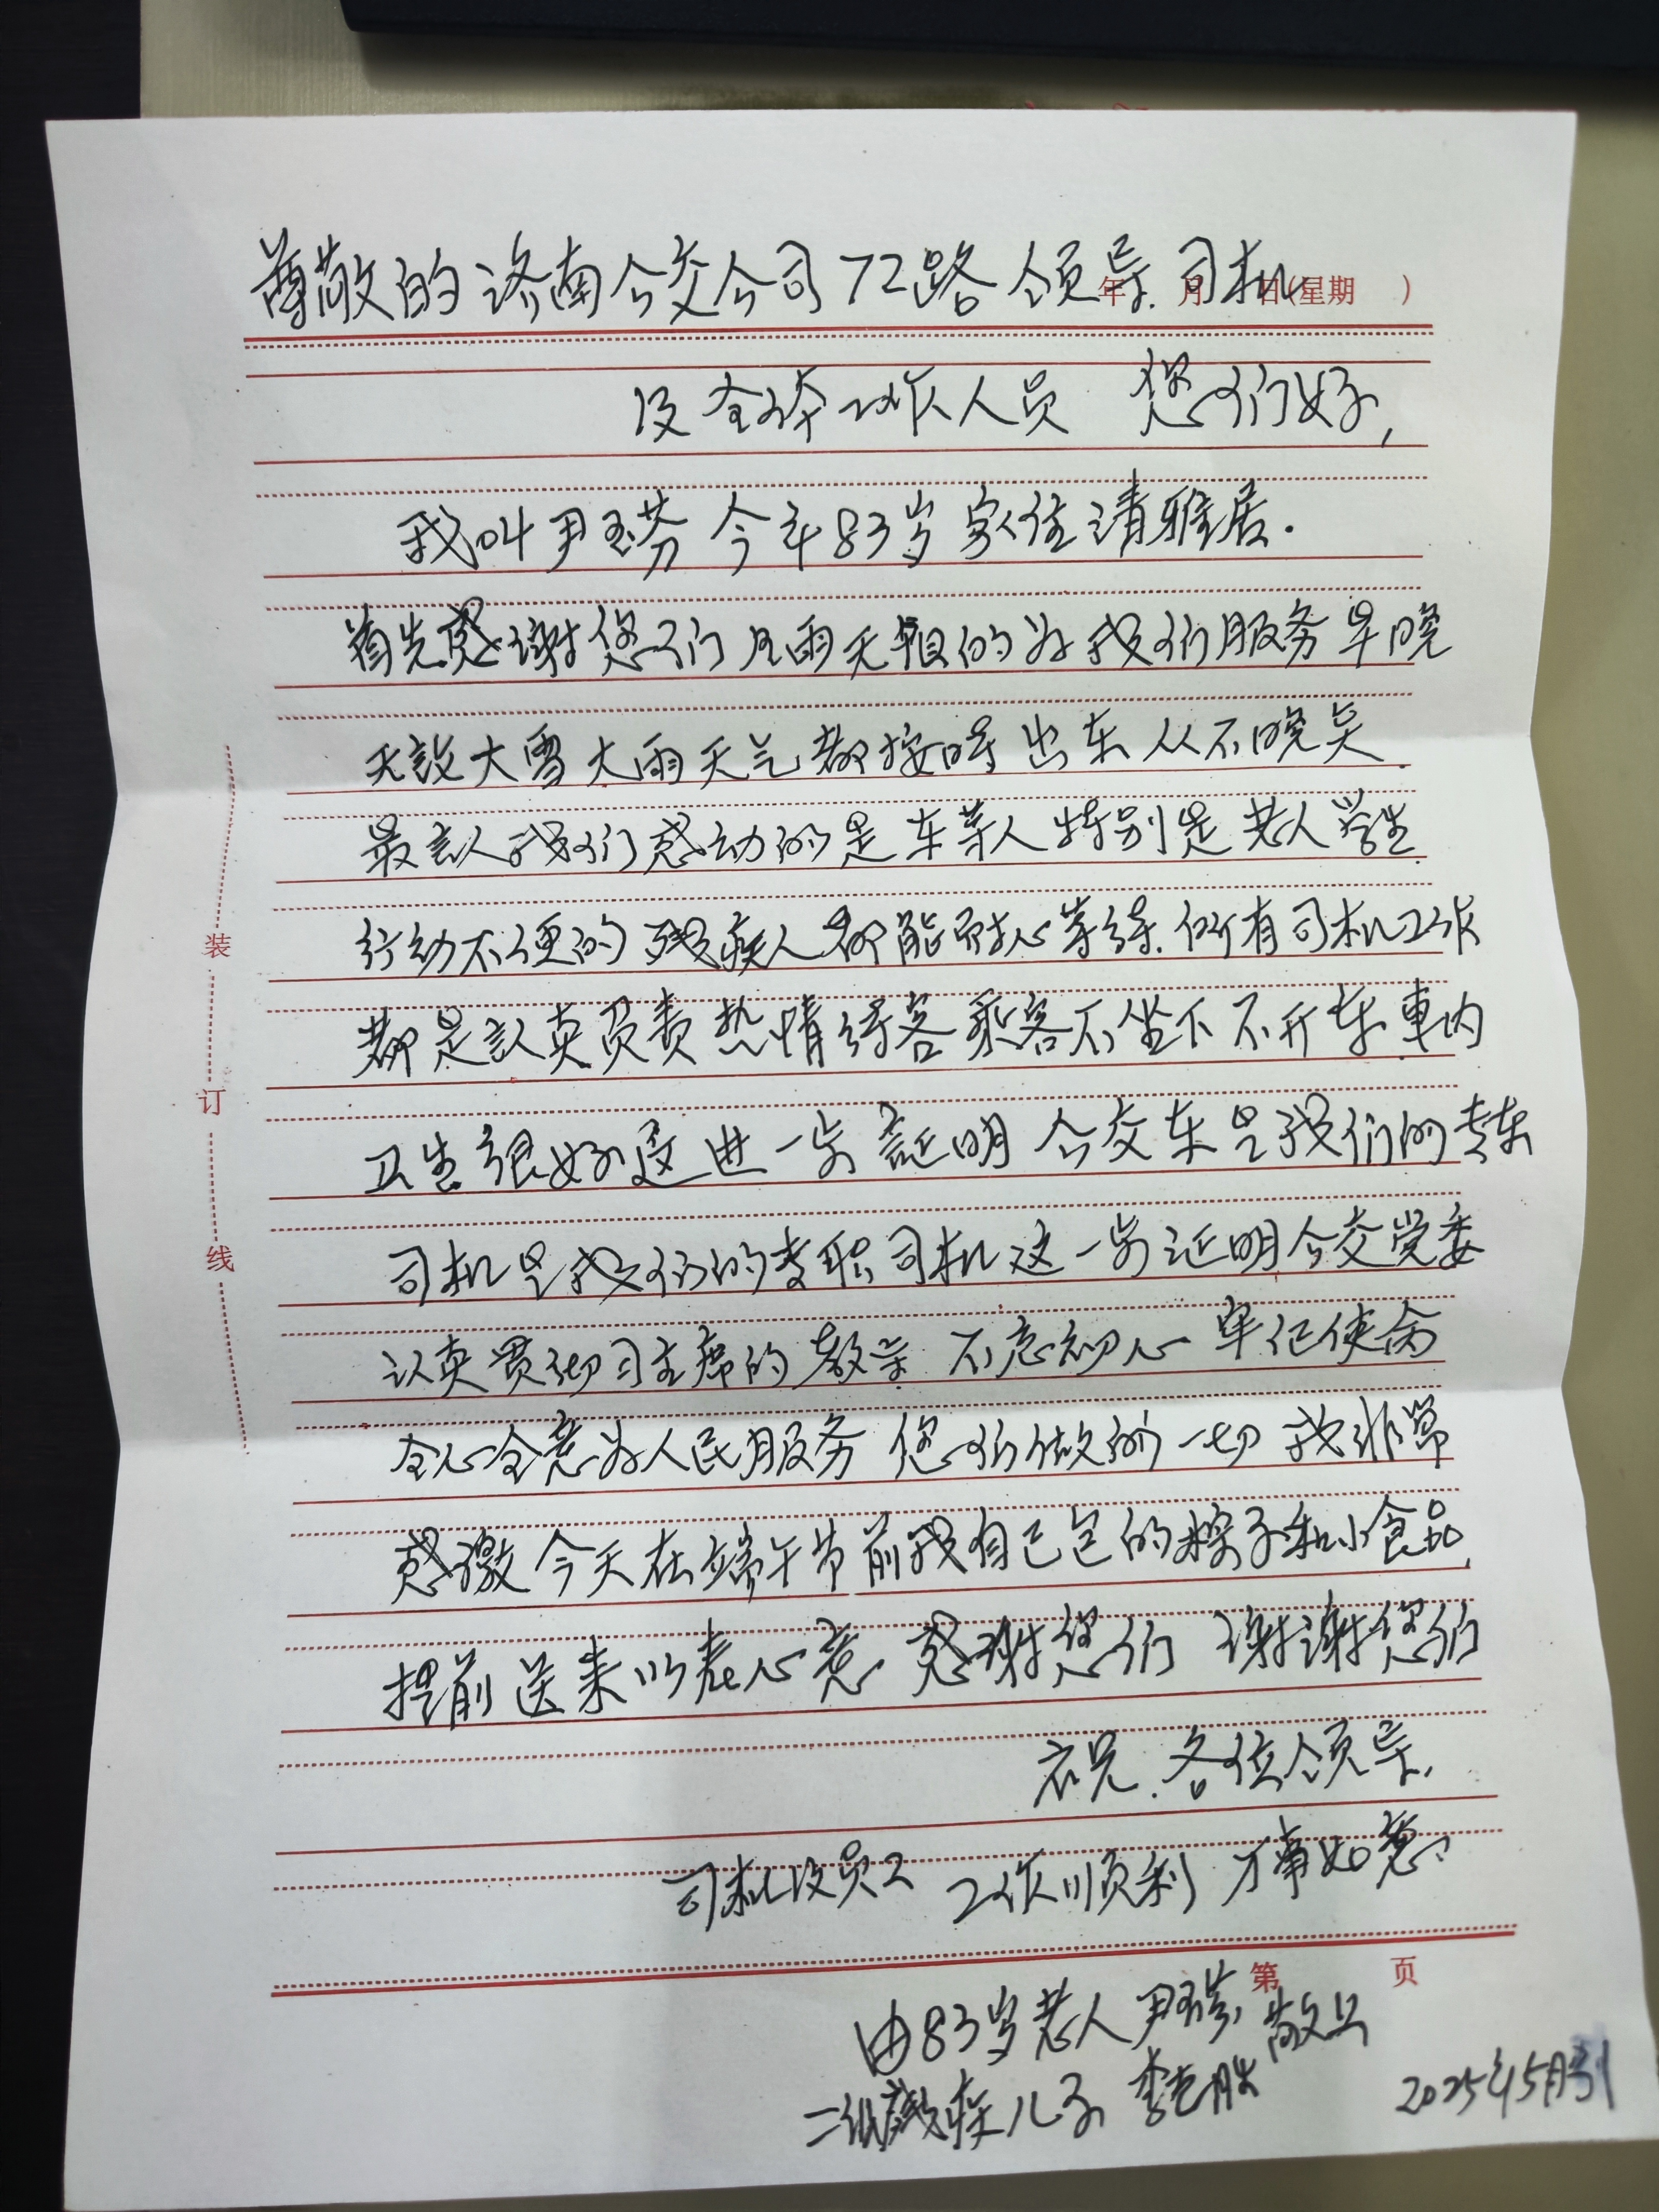 尊敬的济南公交公司72路领导.司机
年 月 日(星期 )
及全体工作人员 您们好,
我叫尹玉芬今年83岁家住清雅居.
首先感谢您们风雨无阻的为我们服务早晚
无论大雪大雨天气都按时出车从不晚点.
最让人我们感动的是车等人特别是老人学生.
行动不便的残疾人都能耐心等待.所有司机工作
都是认真负责热情待客乘客不坐下不开车車内
卫生很好这进一步証明公交车是我们的专车
司机是我们的专职司机这一步证明公交党委
认真贯彻习主席的教导 不忘初心牢记使命
全心全意为人民服务 您们做的一切我非常
感激今天在端午节前我自己包的粽子和小食品
提前送来以表心意.感谢您们 谢谢您们
衣祝.各位领导.
司机及员工 工作顺利 万事如意
装
订
线
第 页
由83岁老人尹玉芬敬上
二级残疾儿子李
2025年5月